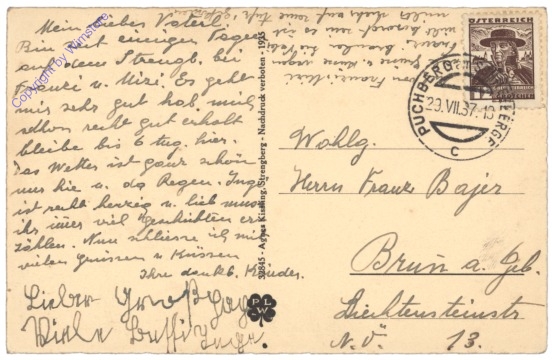 Mein lieber Vaterl.
Bin seit einigen Tagen
auf dem Strengb. bei
Franzi u. Mizi. Es geht
mir sehr gut hab mich
schon recht gut erholt
bleibe bis 6 Aug. hier.
Das Wetter ist ganz schön
nur hie u. da Regen. Inge
ist recht herzig u. lieb muss
ihr immer viel Geschichten er
zählen. Nun schliesse ich mit
vielen Grüssen u Küssen
Ihre dankb. Kinder.
Lieber Großpapa
Viele Bussi Inge.
Copyright by Winsterer
32845 - Agnes Kissling, Strengberg - Nachdruck verboten - 1935
PLW
ÖSTERREICH
PUCHBERG
23.VII.37
C
Wohlg.
Herrn Franz Bajer
Brun a. Geb.
Liechtensteinstr
N.Ö. 13.